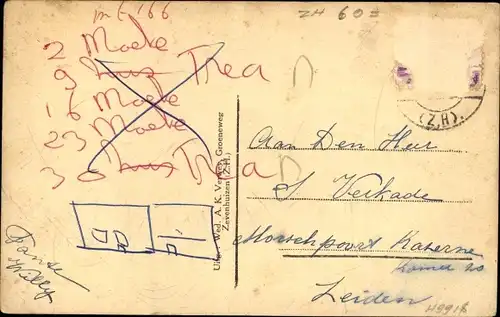 m E 166
ZH 603
2 Moeke
9 Thea D
16 Moeke
23 Moeke
30 Thea D
(Z.H).
Uitg. Wed. A. K. Verweij, Groeneweg
Zevenhuizen (Z.H.)
Aan Den Heer
J Verkade
Morschpoort Kazerne
Kamer 20
Leiden
Willy
H9918